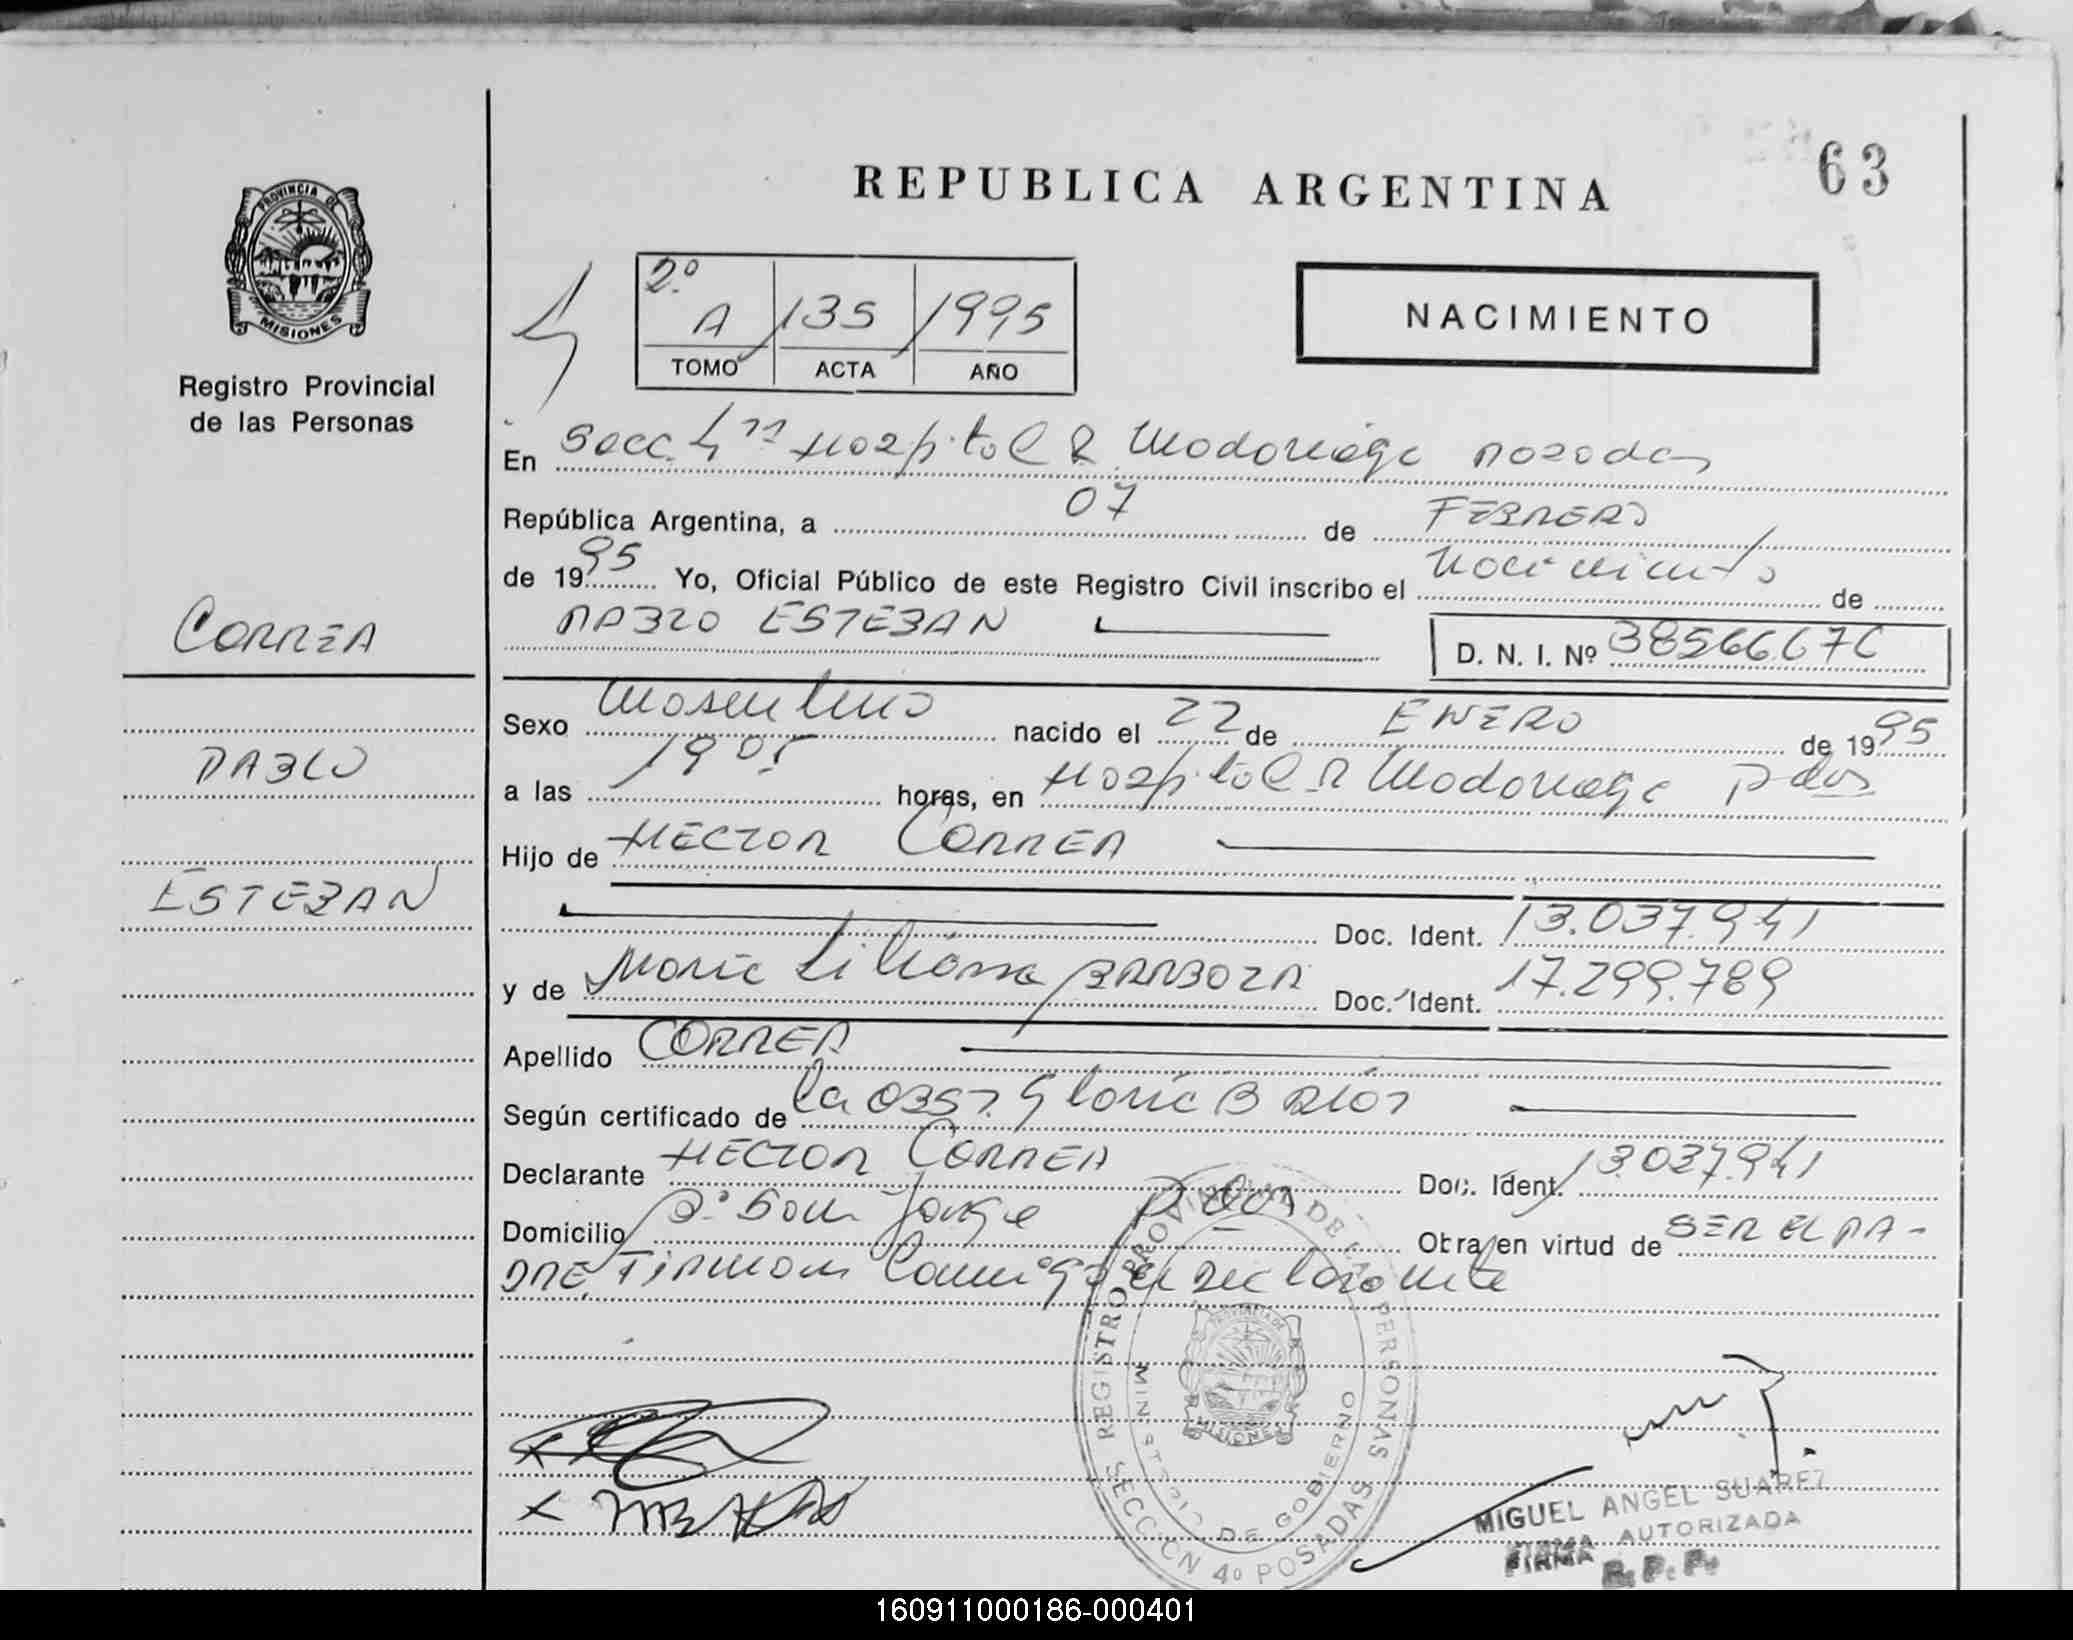 63
REPUBLICA ARGENTINA
PROVINCIA DE MISIONES
Registro Provincial
de las Personas
4
2º A 135 1995
TOMO ACTA AÑO
NACIMIENTO
En Secc. 4ta Hospital R Madariaga Posadas
República Argentina, a 07 de FEBRERO
de 1995 Yo, Oficial Público de este Registro Civil inscribo el Nacimiento de
PABLO ESTEBAN
D. N. I. Nº 38566676
CORREA
PABLO
ESTEBAN
Sexo Masculino nacido el 22 de ENERO de 1995
a las 1905 horas, en Hospital R Madariaga Pdas
Hijo de HECTOR CORREA
Doc. Ident. 13.037.941
y de Maria Liliana BARBOZA Doc. Ident. 17.299.789
Apellido CORREA
Según certificado de la OBST. Gloria B Rios
Declarante HECTOR CORREA Doc. Ident. 13.037.941
Domicilio Bº San Jorge Pdas Obra en virtud de SER EL PA-
DRE. Firman Conmigo el declarante
REGISTRO PROVINCIAL DE LAS PERSONAS
MINISTERIO DE GOBIERNO
SECCION 4º POSADAS
PROVINCIA DE MISIONES
MIGUEL ANGEL SUAREZ
FIRMA AUTORIZADA
R. P. P.
160911000186-000401